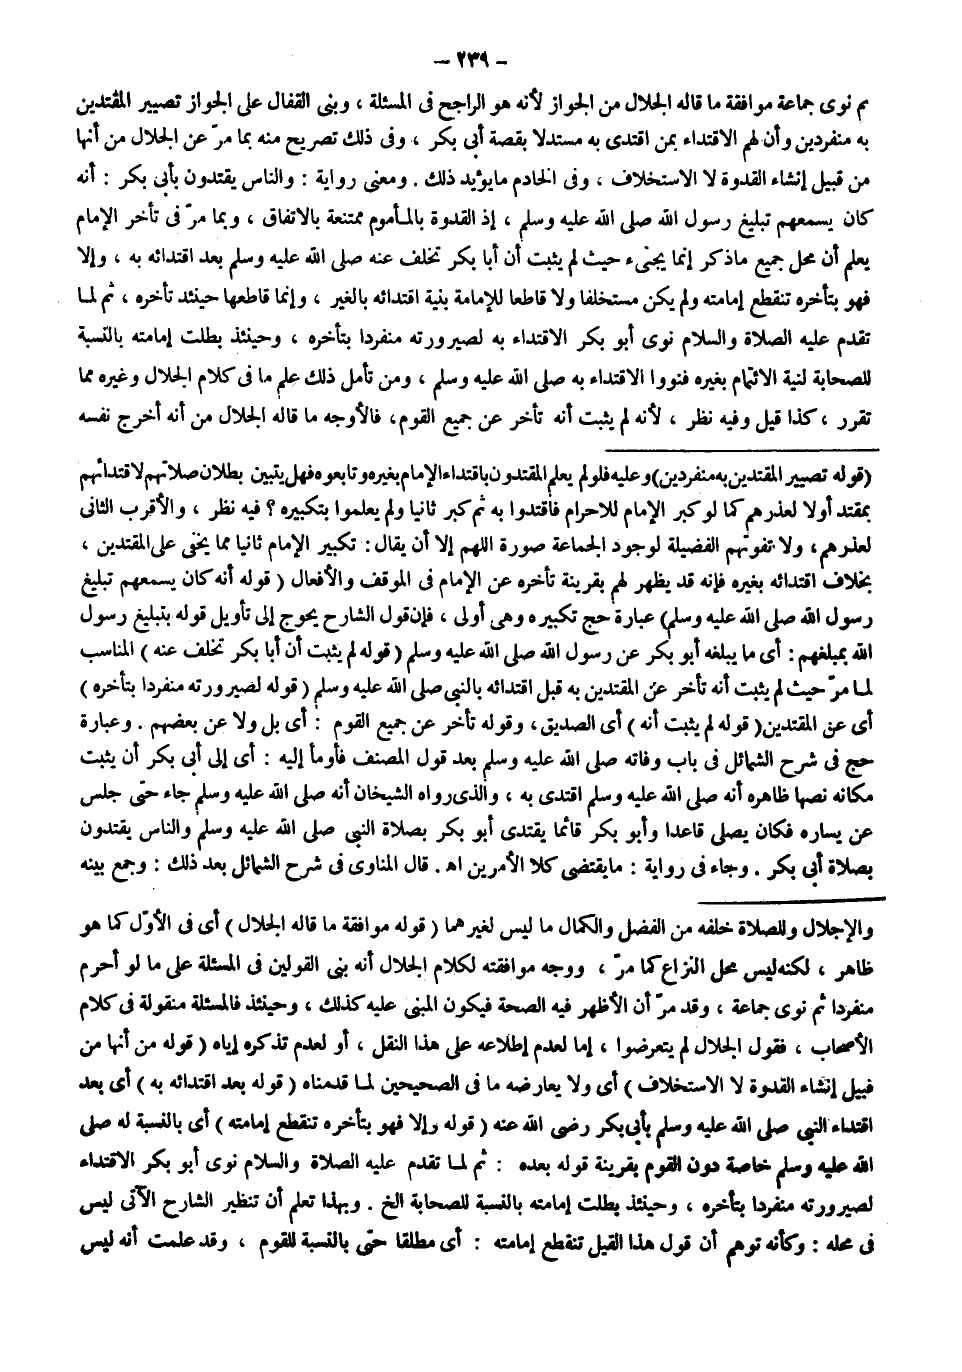 – ٢٣٩ –
ثم نوى جماعة موافقة ما قاله الجلال من الجواز لأنه هو الراجح فى المسئلة ، وبنى القفال على الجواز تصيير المقتدين
به منفردين وأن لهم الاقتداء بمن اقتدى به مستدلا بقصة أبى بكر ، وفى ذلك تصريح منه بما مرّ عن الجلال من أنها
من قبيل إنشاء القدوة لا الاستخلاف ، وفى الخادم مايؤيد ذلك . ومعنى رواية : والناس يقتدون بأبى بكر : أنه
كان يسمعهم تبليغ رسول الله صلى الله عليه وسلم ، إذ القدوة بالمأموم ممتنعة بالاتفاق ، وبما مرّ فى تأخر الإمام
يعلم أن محل جميع ماذكر إنما يجىء حيث لم يثبت أن أبا بكر تخلف عنه صلى الله عليه وسلم بعد اقتدائه به ، وإلا
فهو بتأخره تنقطع إمامته ولم يكن مستخلفا ولا قاطعا للإمامة بنية اقتدائه بالغير ، وإنما قاطعها حينئد تأخره ، ثم لما
تقدم عليه الصلاة والسلام نوى أبو بكر الاقتداء به لصيرورته منفردا بتأخره ، وحينئذ بطلت إمامته بالنسبة
للصحابة لنية الائتمام بغيره فنووا الاقتداء به صلى الله عليه وسلم ، ومن تأمل ذلك علم ما فى كلام الجلال وغيره مما
تقرر ، كذا قيل وفيه نظر ، لأنه لم يثبت أنه تأخر عن جميع القوم، فالأوجه ما قاله الجلال من أنه أخرج نفسه
(قوله تصيير المقتدين به منفردين) وعليه فلو لم يعلم المقتدون باقتداء الإمام بغيره وتابعوه فهل يتبين بطلان صلاتهم لاقتدائهم
بمقتد أولا لعذرهم كما لو كبر الإمام للاحرام فاقتدوا به ثم كبر ثانيا ولم يعلموا بتكبيره ؟ فيه نظر ، والأقرب الثانى
لعذرهم، ولا تفوتهم الفضيلة لوجود الجماعة صورة اللهم إلا أن يقال : تكبير الإمام ثانيا مما يخفى على المقتدين ،
بخلاف اقتدائه بغيره فإنه قد يظهر لهم بقرينة تأخره عن الإمام فى الموقف والأفعال ( قوله أنه كان يسمعهم تبليغ
رسول الله صلى الله عليه وسلم) عبارة حج تكبيره وهى أولى ، فإن قول الشارح يحوج إلى تأويل قوله بتبليغ رسول
الله بمبلغهم : أى ما يبلغه أبو بكر عن رسول الله صلى الله عليه وسلم ( قوله لم يثبت أن أبا بكر تخلف عنه ) المناسب
لما مرّ حيث لم يثبت أنه تأخر عن المقتدين به قبل اقتدائه بالنبى صلى الله عليه وسلم ( قوله لصيرورته منفردا بتأخره )
أى عن المقتدين ( قوله لم يثبت أنه ) أى الصديق، وقوله تأخر عن جميع القوم : أى بل ولا عن بعضهم . وعبارة
حج فى شرح الشمائل فى باب وفاته صلى الله عليه وسلم بعد قول المصنف فأومأ إليه : أى إلى أبى بكر أن يثبت
مكانه نصها ظاهره أنه صلى الله عليه وسلم اقتدى به ، والذى رواه الشيخان أنه صلى الله عليه وسلم جاء حتى جلس
عن يساره فكان يصلى قاعدا وأبو بكر قائما يقتدى أبو بكر بصلاة النبى صلى الله عليه وسلم والناس يقتدون
بصلاة أبى بكر . وجاء فى رواية : مايقتضى كلا الأمرين اه . قال المناوى فى شرح الشمائل بعد ذلك : وجمع بينه
والإجلال وللصلاة خلفه من الفضل والكمال ما ليس لغيرهما ( قوله موافقة ما قاله الجلال ) أى فى الأوّل كما هو
ظاهر ، لكنه ليس محل النزاع كما مرّ ، ووجه موافقته لكلام الجلال أنه بنى القولين فى المسئلة على ما لو أحرم
منفردا ثم نوى جماعة ، وقد مرّ أن الأظهر فيه الصحة فيكون المبنى عليه كذلك ، وحينئذ فالمسئلة منقولة فى كلام
الأصحاب ، فقول الجلال لم يتعرضوا ، إما لعدم إطلاعه على هذا النقل ، أو لعدم تذكره إياه ( قوله من أنها من
قبيل إنشاء القدوة لا الاستخلاف ) أى ولا يعارضه ما فى الصحيحين لما قدمناه ( قوله بعد اقتدائه به ) أى بعد
اقتداء النبى صلى الله عليه وسلم بأبى بكر رضى الله عنه ( قوله وإلا فهو بتأخره تنقطع إمامته ) أى بالنسبة له صلى
الله عليه وسلم خاصة دون القوم بقرينة قوله بعده : ثم لما تقدم عليه الصلاة والسلام نوى أبو بكر الاقتداء
لصيرورته منفردا بتأخره ، وحينئذ بطلت إمامته بالنسبة للصحابة الخ . وبهذا تعلم أن تنظير الشارح الآتى ليس
فى محله : وكأنه توهم أن قول هذا القيل تنقطع إمامته : أى مطلقا حتى بالنسبة للقوم ، وقد علمت أنه ليس